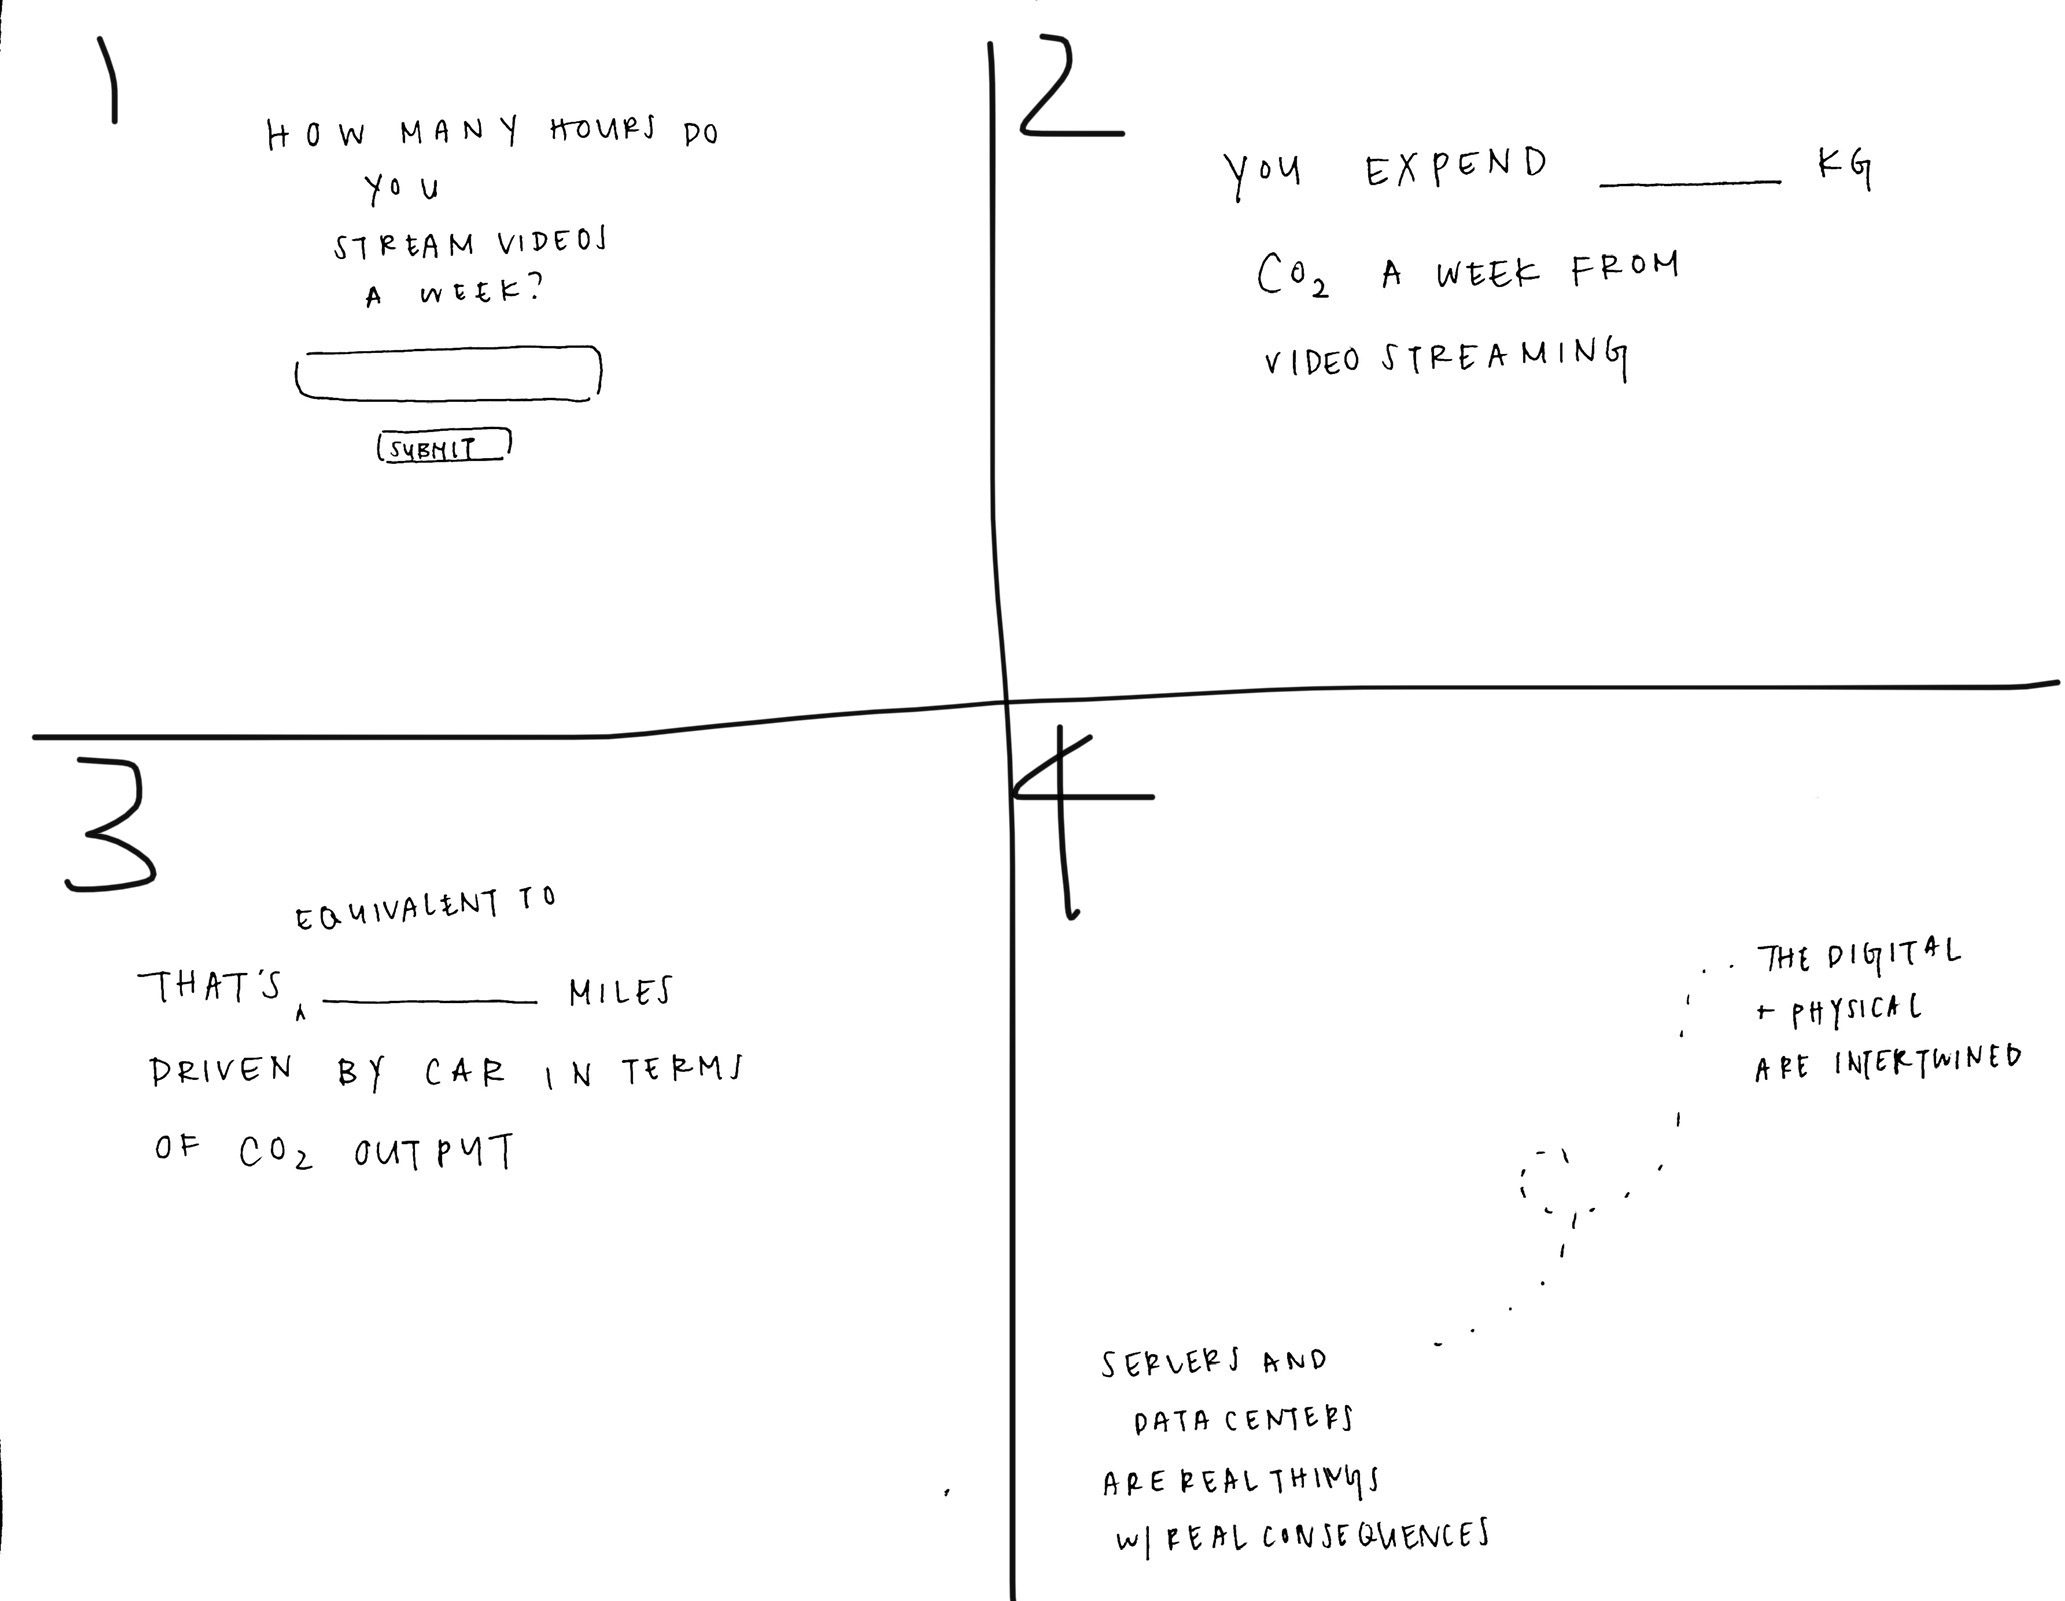 1
HOW MANY HOURS DO
YOU
STREAM VIDEOS
A WEEK?
SUBMIT
2
YOU EXPEND ______ KG
CO₂ A WEEK FROM
VIDEO STREAMING
3
EQUIVALENT TO
THAT'S ‸ ______ MILES
DRIVEN BY CAR IN TERMS
OF CO₂ OUTPUT
4
THE DIGITAL
+ PHYSICAL
ARE INTERTWINED
SERVERS AND
DATA CENTERS
ARE REAL THINGS
W/ REAL CONSEQUENCES